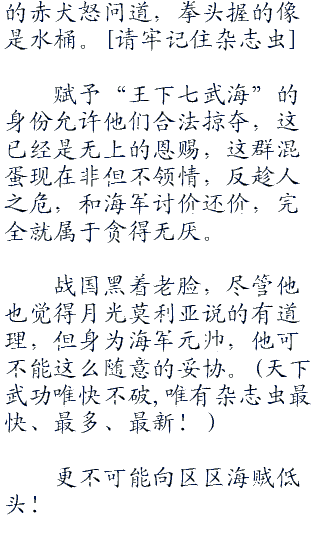 的赤犬怒问道，拳头握的像
是水桶。[请牢记住杂志虫]
赋予“王下七武海”的
身份允许他们合法掠夺，这
已经是无上的恩赐，这群混
蛋现在非但不领情，反趁人
之危，和海军讨价还价，完
全就属于贪得无厌。
战国黑着老脸，尽管他
也觉得月光莫利亚说的有道
理，但身为海军元帅，他可
不能这么随意的妥协。(天下
武功唯快不破,唯有杂志虫最
快、最多、最新！)
更不可能向区区海贼低
头！